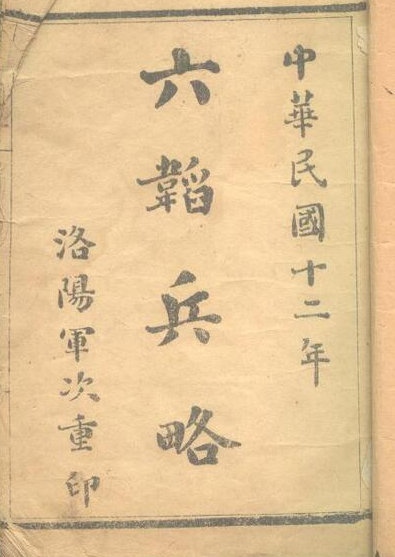 中華民國十二年
六韜兵略
洛陽軍次重印